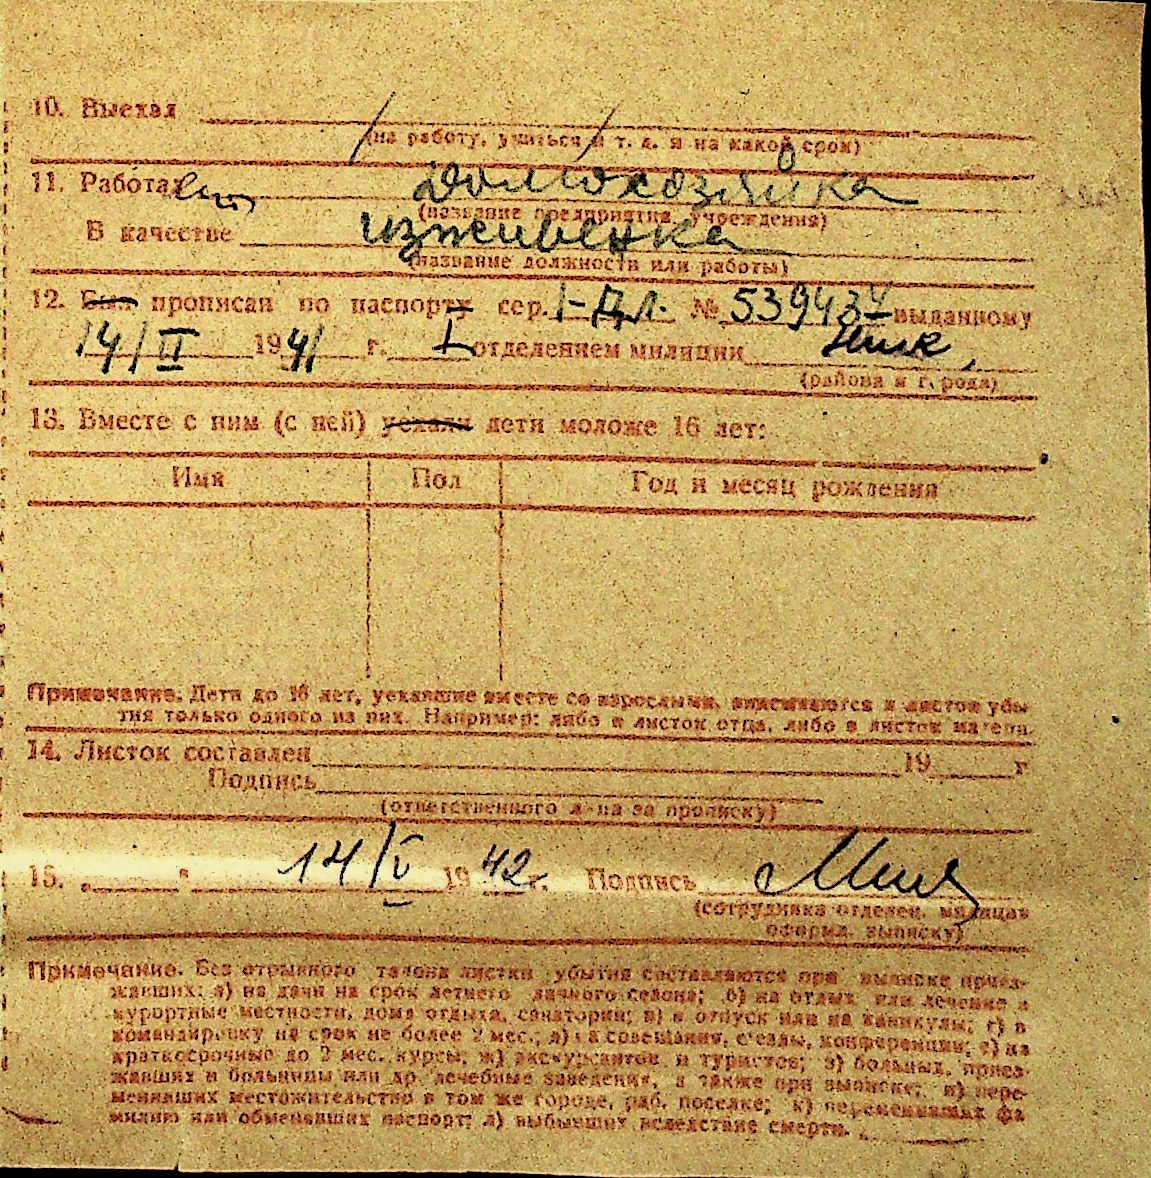 10. Выехал
(на работу, учиться и т. д. и на какой срок)
11. Работал домохозяйка
(название предприятия, учреждения)
В качестве иждивенка
(название должности или работы)
12. Был прописан по паспорту сер. I-ДЛ. № 539434 выданному
14/II 1941 г. I отделением милиции
(района и города)
13. Вместе с ним (с ней) уехали дети моложе 16 лет:
Имя Пол Год и месяц рождения
Примечание. Дети до 16 лет, уехавшие вместе со взрослыми, вписываются в листок убы
тия только одного из них. Например: либо в листок отца, либо в листок матери
14. Листок составлен 19 г
Подпись
(ответственного л-ца за прописку)
15. " " 14/V 1942 г. Подпись
(сотрудника отделен. милиции
оформл. выписку)
Примечание. Без отрывного талона листки убытия составляются при выписке приез-
жавших: а) на дачи на срок летнего дачного сезона; б) на отдых или лечение в
курортные местности, дома отдыха, санатории; в) в отпуск или на каникулы; г) в
командировку на срок не более 2 мес.; д) на совещания, с'езды, конференции; е) на
краткосрочные до 2 мес. курсы; ж) экскурсантов и туристов; з) больных, приез-
жавших в больницы или др. лечебные заведения, а также при выписке; и) пере-
менивших местожительство в том же городе, раб. поселке; к) переменивших фа
милию или обменявших паспорт; л) выбывших вследствие смерти.